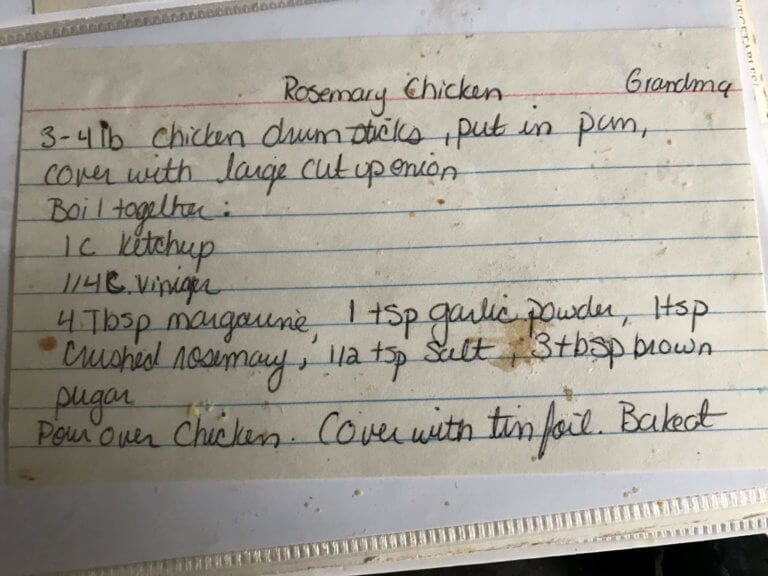 Rosemary Chicken Grandma
3-4 lb chicken drumsticks, put in pan,
cover with large cut up onion
Boil together:
1 c ketchup
1/4 c. viniger
4 Tbsp margarine, 1 tsp garlic powder, 1 tsp
crushed rosemary, 1/2 tsp salt, 3 tbsp brown
sugar
Pour over chicken. Cover with tin foil. Baked at